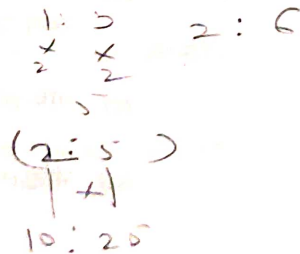 1 : 3 2 : 6
× ×
2 2
5
(2 : 5)
| × |
10 : 25